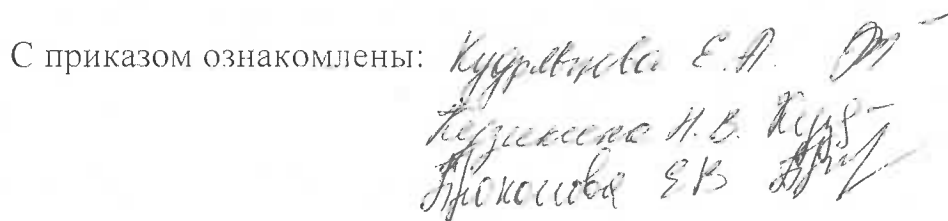 С приказом ознакомлены: Кудрявцева Е.А.
Кузикина Н.В. Кузф
Прокошова ЕВ